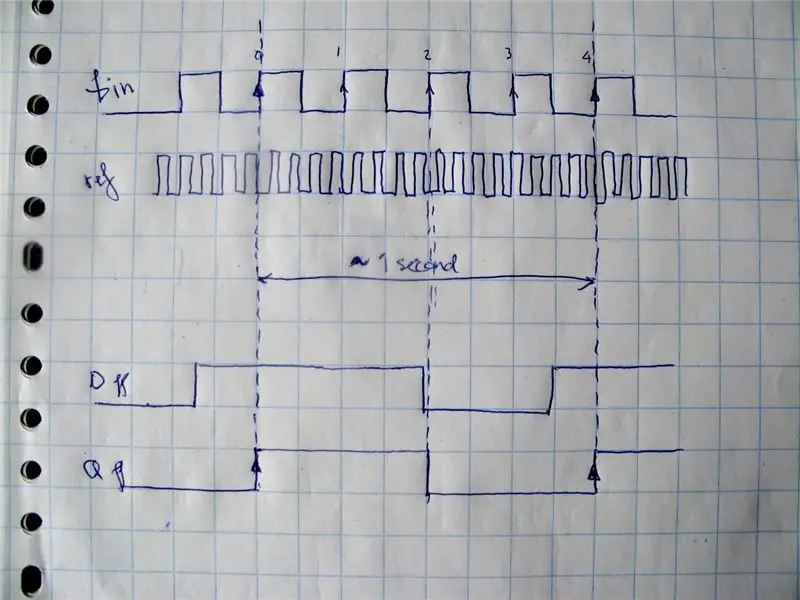 0 1 2 3 4
fin
ref
~ 1 second
D ff
Q ff